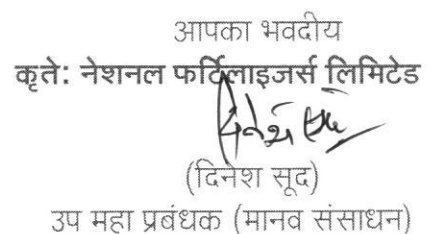 आपका भवदीय
कृते: नेशनल फर्टिलाइजर्स लिमिटेड
(दिनेश सूद)
उप महा प्रबंधक (मानव संसाधन)